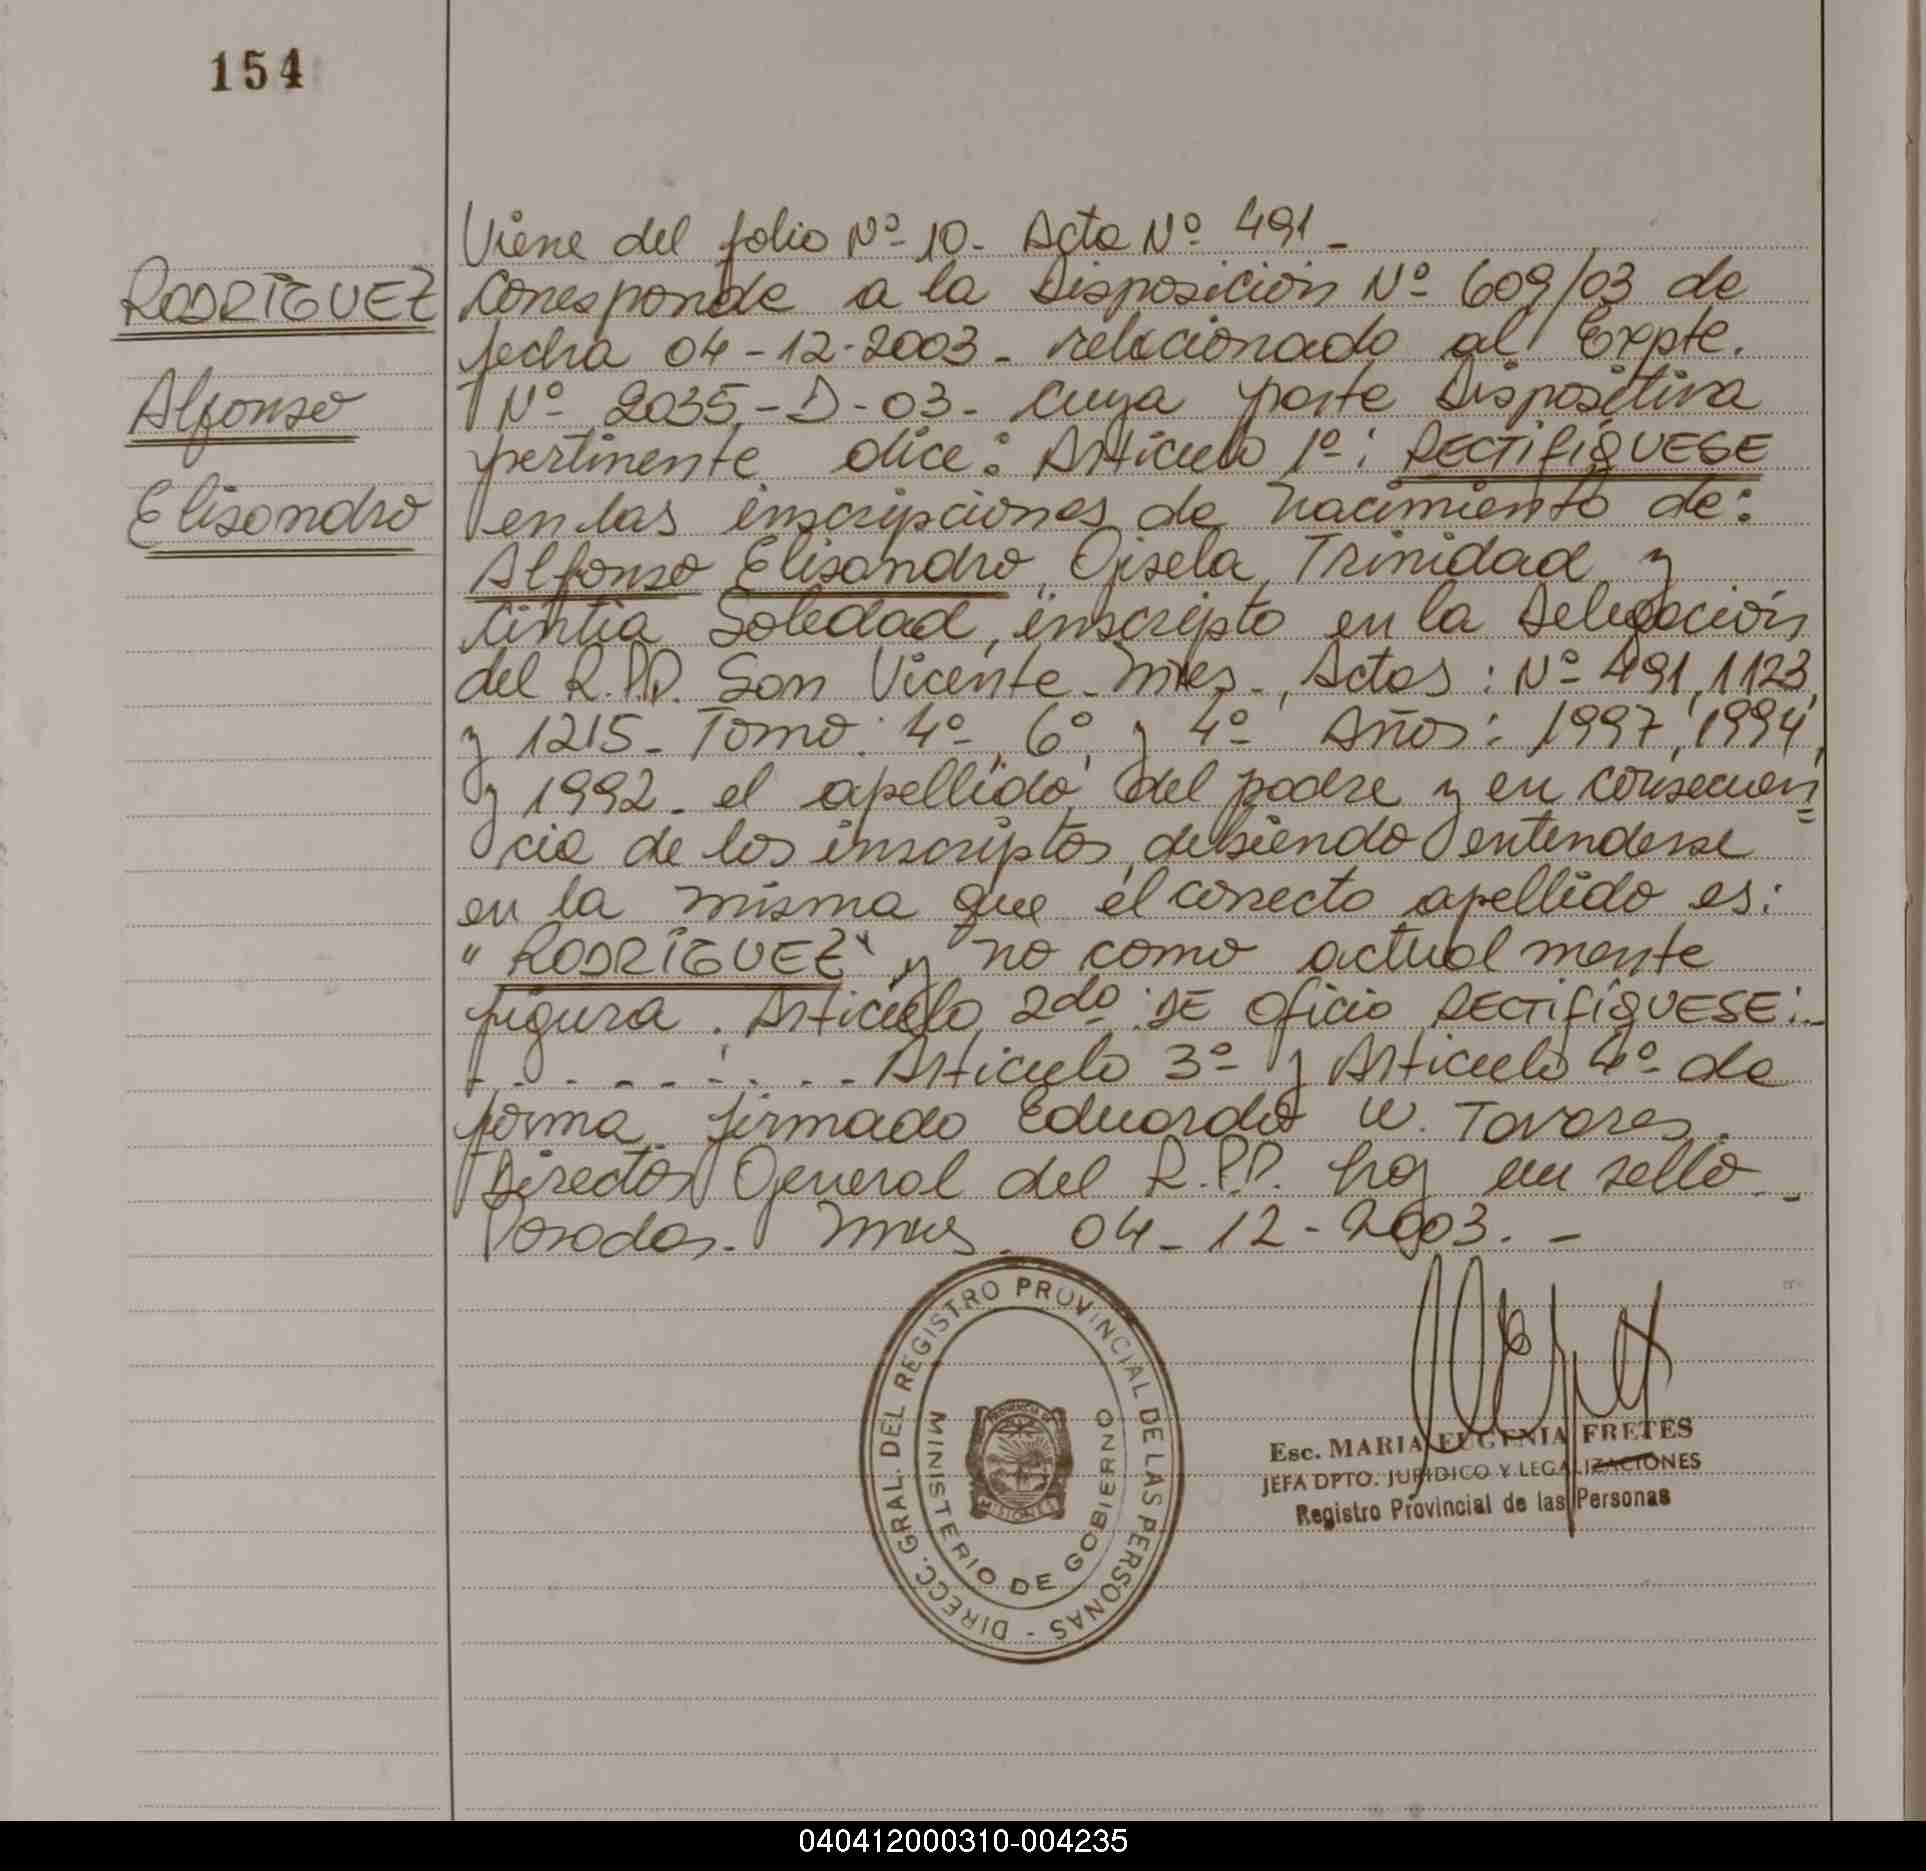 154
RODRÍGUEZ
Alfonso
Elisandro
Viene del folio Nº 10. Acta Nº 491_
Corresponde a la Disposición Nº 609/03 de
fecha 04-12-2003_ relacionado al Expte.
Nº 2035-D-03_ cuya parte Dispositiva
pertinente dice: Articulo 1º: RECTIFÍQUESE
en las inscripciones de nacimiento de:
Alfonso Elisandro, Gisela Trinidad y
Cintia Soledad, inscripto en la Delegación
del R.P.P. San Vicente_ Mnes_, Actas: Nº 491, 1123,
y 1215_ Tomo: 4º, 6º, y 4º Años: 1997, 1994,
y 1992_ el apellido del padre y en consecuen=
cia de los inscriptos, debiendo entenderse
en la misma que el correcto apellido es:
"RODRÍGUEZ" y no como actualmente
figura. Articulo 2do: DE Oficio RECTIFÍQUESE:._
- . - . - - - . . - Articulo 3º y Articulo 4º de
forma. firmado Eduardo W. Tavares.
Director General del R.P.P. hay un sello._
Posadas. Mnes_ 04-12-2003._
DIRECC. GRAL. DEL REGISTRO PROVINCIAL DE LAS PERSONAS -
MINISTERIO DE GOBIERNO
PROVINCIA DE
MISIONES
Esc. MARIA EUGENIA FRETES
JEFA DPTO. JURIDICO Y LEGALIZACIONES
Registro Provincial de las Personas
040412000310-004235